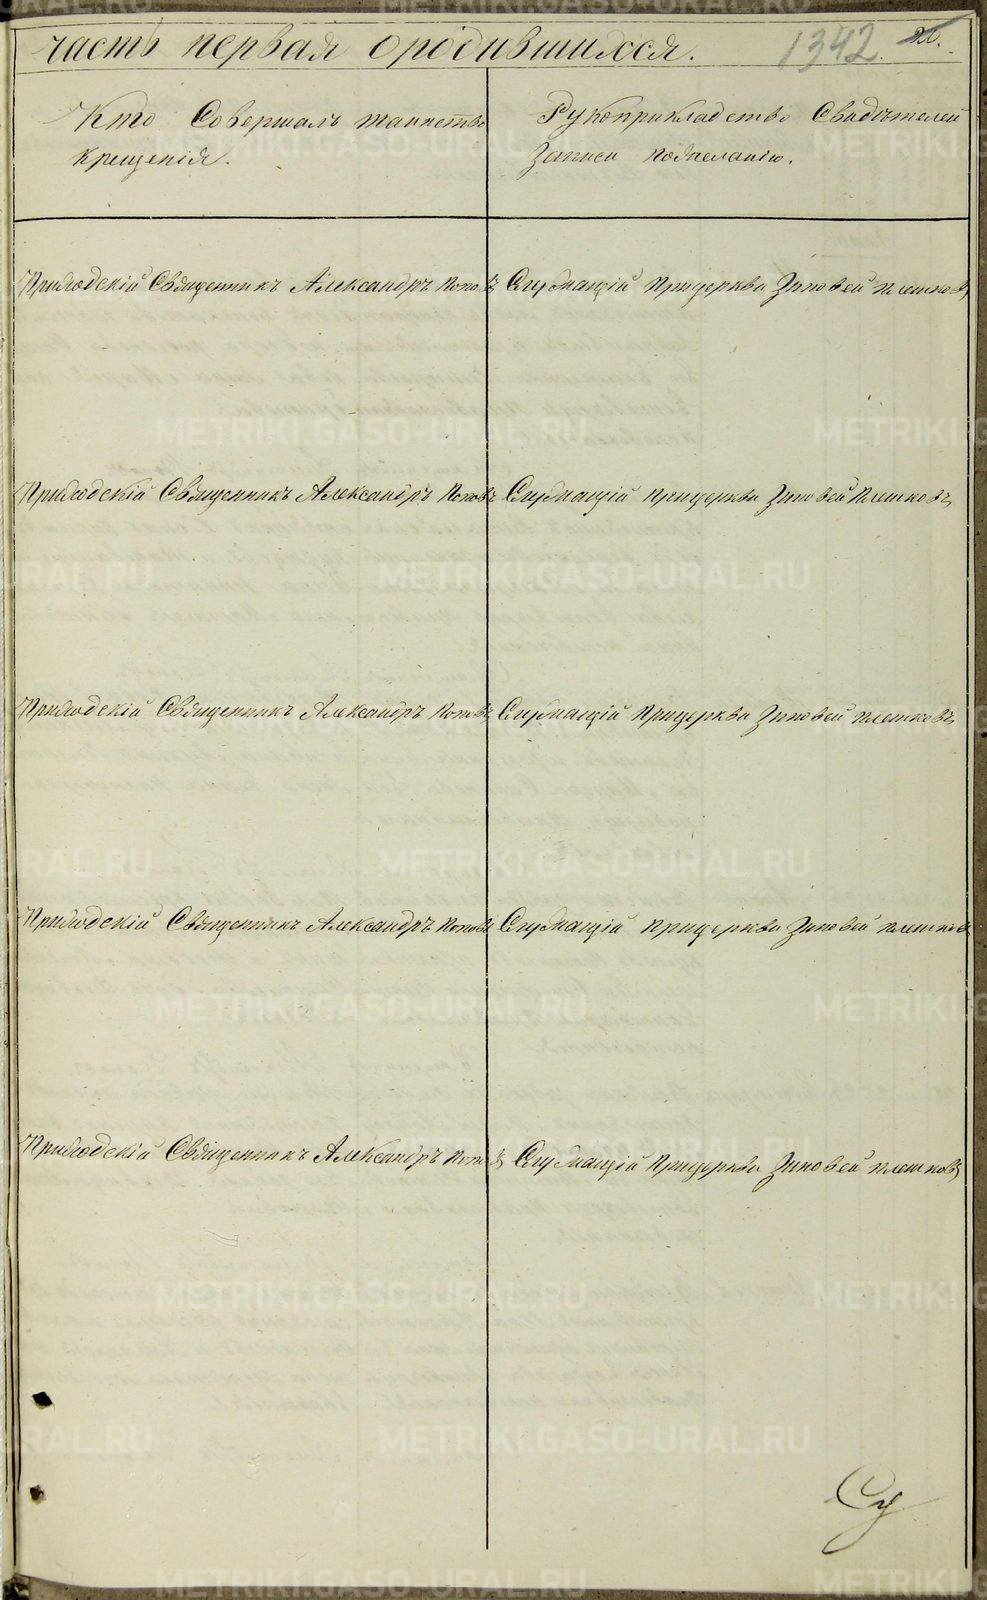 часть первая о родившихся. 1342.
Кто Совершалъ таинство
крещенія.
Рукоприкладство Свидѣтелей
Записи пожеланію.
Приходскій Священникъ Александръ Поповъ Служащій Прицеркви Зиновей Плешковъ
Приходскій Священникъ Александръ Поповъ Служащій прицеркви Зиновей Плешковъ
Приходскій Священникъ Александръ Поповъ Служащій Прицеркви Зиновей Плешковъ
Приходскій Священникъ Александръ Поповъ Служащій прицеркви Зиновей плешковъ
Приходскій Священникъ Александръ Поповъ Служащій Прицеркви Зиновей плешковъ
Су
METRIKI.GASO-URAL.RU